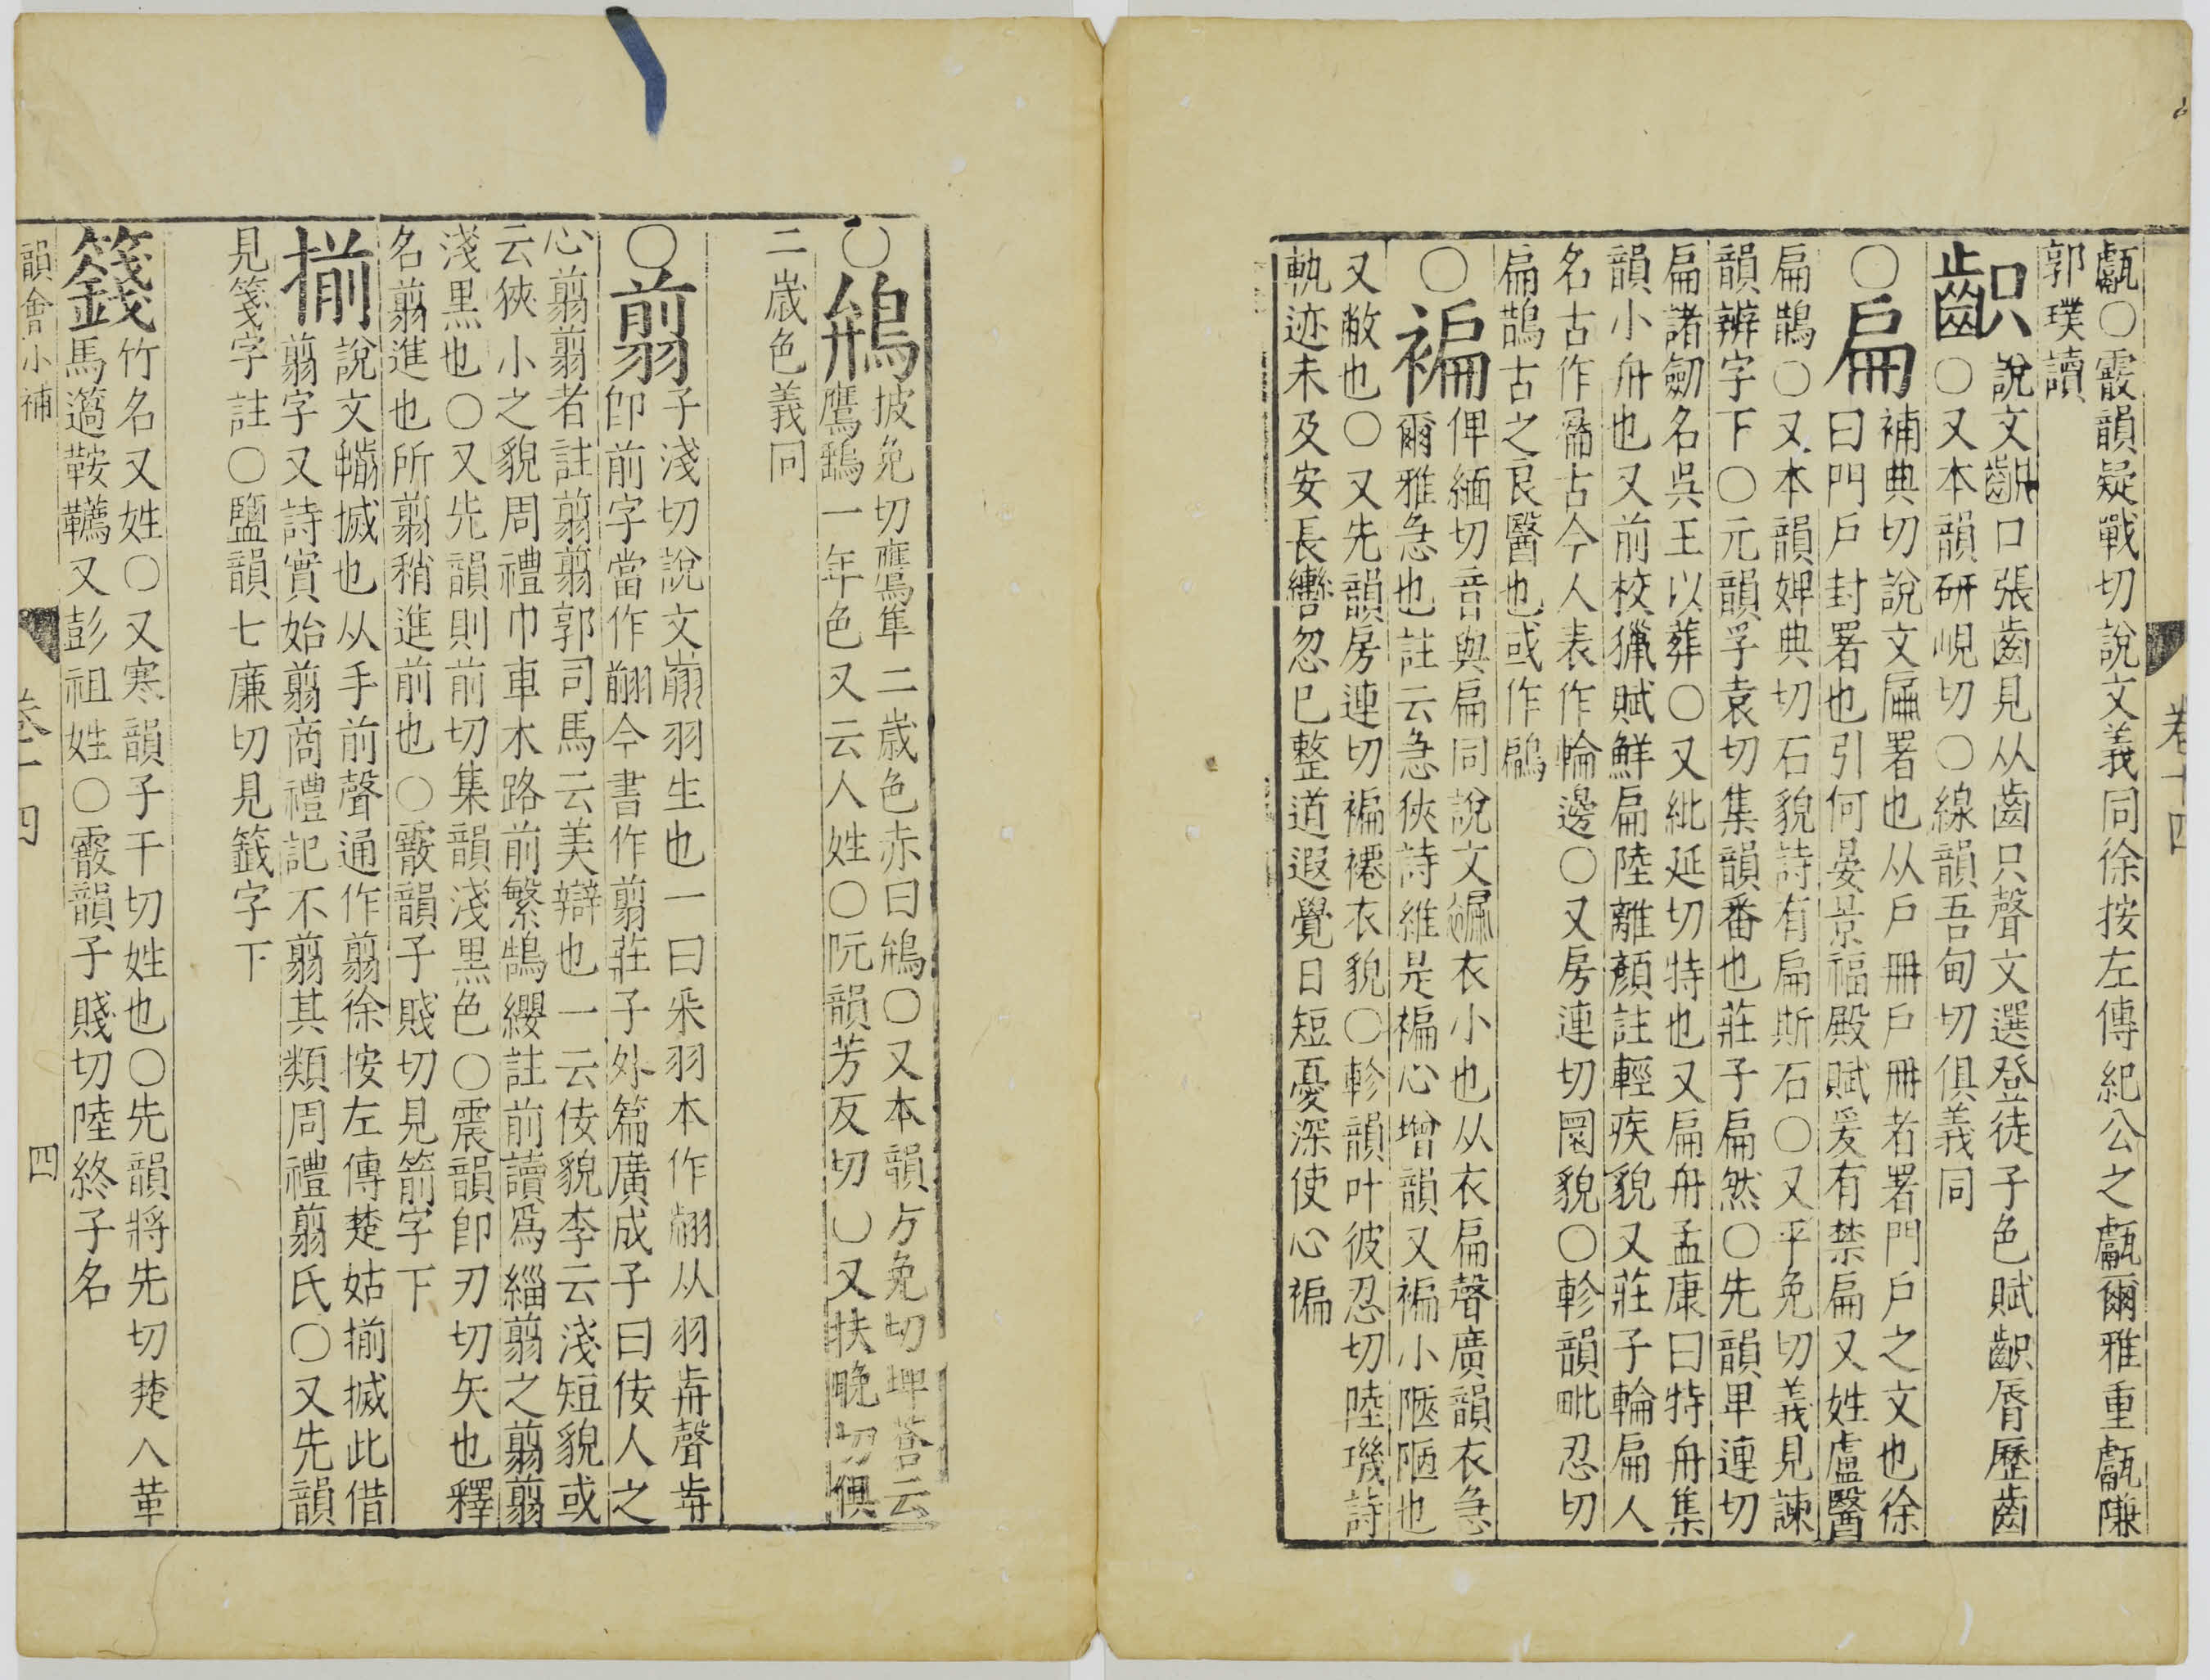 甗○霰韻疑戰切說文義同徐按左傳紀公之甗爾雅重甗隒
郭璞讀
齞說文齞口張齒見从齒只聲文選登徒子色賦齞脣歷齒
○又本韻研峴切○線韻吾甸切俱義同
○扁補典切說文扁署也从戶冊戶冊者署門戶之文也徐
曰門戶封署也引何晏景福殿賦爰有禁扁又姓盧醫
扁鵲○又本韻婢典切石貌詩有扁斯石○又平免切義見諫
韻辨字下○元韻孚袁切集韻番也莊子扁然○先韻卑連切
扁諸劒名吳王以葬○又紕延切特也又扁舟孟康曰特舟集
韻小舟也又前校獵賦鮮扁陸離顏註輕疾貌又莊子輪扁人
名古作 古今人表作輪邊○又房連切圜貌○軫韻毗忍切
扁鵲古之良醫也或作鶣
○褊俾緬切音與扁同說文褊衣小也从衣扁聲廣韻衣急
爾雅急也註云急狹詩維是褊心增韻又褊小陿陋也
又敝也○又先韻房連切褊褼衣貌○軫韻叶彼忍切陸璣詩
軌迹未及安長轡忽已整道遐覺日短憂深使心褊
○鴘披免切鷹隼二歲色赤曰鴘○又本韻方免切埤蒼云
鷹鷂一年色又云人姓○阮韻芳反切○又扶晚切俱
二歲色義同
○翦子淺切說文翦羽生也一曰采羽本作翦从羽歬聲歬
卽前字當作翦今書作翦莊子外篇廣成子曰佞人之
心翦翦者註翦翦郭司馬云美辯也一云佞貌李云淺短貌或
云狹小之貌周禮巾車木路前繁鵠纓註前讀爲緇翦之翦翦
淺黑也○又先韻則前切集韻淺黑色○震韻卽刃切矢也釋
名翦進也所翦稍進前也○霰韻子賤切見箭字下
揃說文揃搣也从手前聲通作翦徐按左傳楚姑揃搣此借
翦字又詩實始翦商禮記不翦其類周禮翦氏○又先韻
見箋字註○鹽韻七廉切見籤字下
籛竹名又姓○又寒韻子干切姓也○先韻將先切楚人革
馬薖鞍韉又彭祖姓○霰韻子賤切陸終子名
韻會小補　卷十四　四